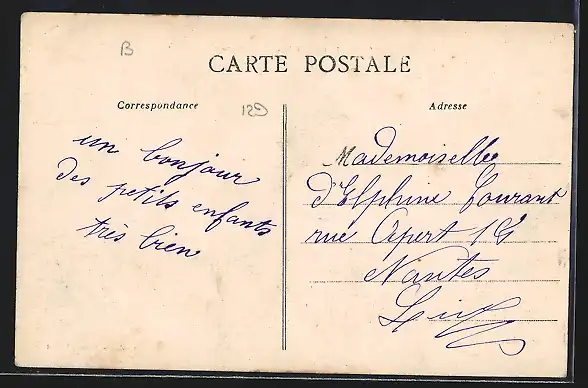 B
CARTE POSTALE
Correspondance
129
Adresse
un bonjour
des petits enfants
très bien
Mademoiselle
d'Elphine Courant
rue
Nantes